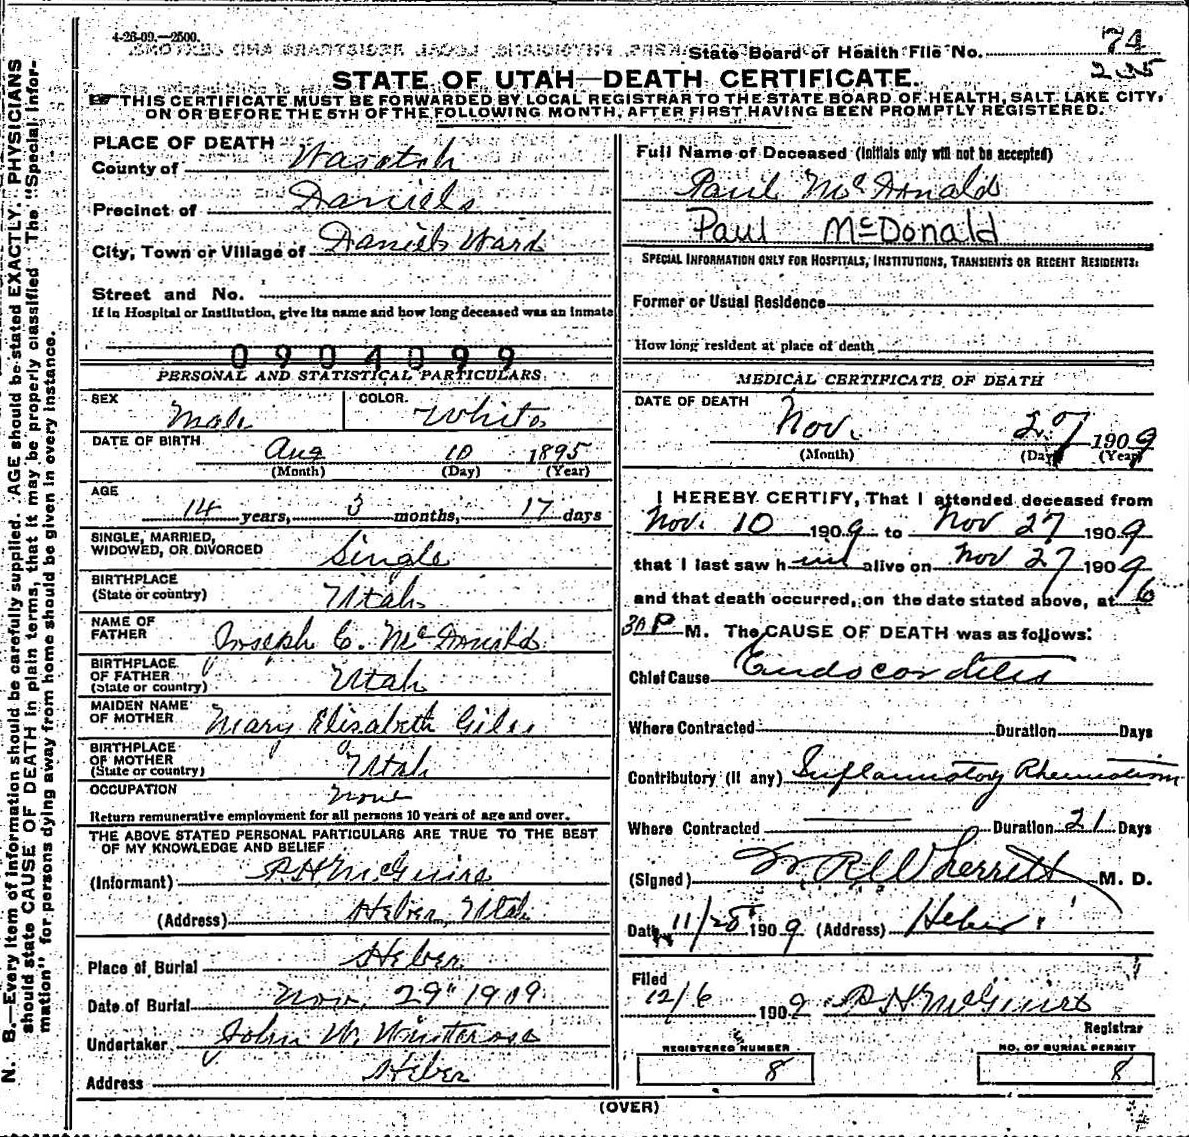 4-26-09.—2500.
State Board of Health File No. 74
235
STATE OF UTAH—DEATH CERTIFICATE.
THIS CERTIFICATE MUST BE FORWARDED BY LOCAL REGISTRAR TO THE STATE BOARD OF HEALTH, SALT LAKE CITY,
ON OR BEFORE THE 5TH OF THE FOLLOWING MONTH, AFTER FIRST HAVING BEEN PROMPTLY REGISTERED.
PLACE OF DEATH
County of Wasatch
Precinct of Daniels
City, Town or Village of Daniels Ward
Street and No.
If in Hospital or Institution, give its name and how long deceased was an inmate
0904099
PERSONAL AND STATISTICAL PARTICULARS
SEX Male COLOR. White
DATE OF BIRTH
Aug 10 1895
(Month) (Day) (Year)
AGE
14 years, 3 months, 17 days
SINGLE, MARRIED,
WIDOWED, OR DIVORCED Single
BIRTHPLACE
(State or country) Utah
NAME OF
FATHER Joseph C. McDonald
BIRTHPLACE
OF FATHER
(State or country) Utah
MAIDEN NAME
OF MOTHER Mary Elisabeth Giles
BIRTHPLACE
OF MOTHER
(State or country) Utah
OCCUPATION None
Return remunerative employment for all persons 10 years of age and over.
THE ABOVE STATED PERSONAL PARTICULARS ARE TRUE TO THE BEST
OF MY KNOWLEDGE AND BELIEF
(Informant) P H McGuire
(Address) Heber, Utah
Place of Burial Heber
Date of Burial Nov. 29" 1909
Undertaker John W. Winterose
Address Heber
Full Name of Deceased (Initials only will not be accepted)
Paul McDonald
Paul McDonald
SPECIAL INFORMATION ONLY FOR HOSPITALS, INSTITUTIONS, TRANSIENTS OR RECENT RESIDENTS:
Former or Usual Residence
How long resident at place of death
MEDICAL CERTIFICATE OF DEATH
DATE OF DEATH
Nov. 27 1909
(Month) (Day) (Year)
I HEREBY CERTIFY, That I attended deceased from
Nov. 10 1909 to Nov 27 1909
that I last saw him alive on Nov 27 1909
and that death occurred, on the date stated above, at 6
30 P M. The CAUSE OF DEATH was as follows:
Chief Cause Endocarditis
Where Contracted Duration Days
Contributory (if any) Inflammatory Rheumatism
Where Contracted Duration 21 Days
(Signed) W. R. Wherritt M. D.
Date 11/28 1909 (Address) Heber
Filed
12/6 1909 P H McGuire
Registrar
REGISTERED NUMBER
8
NO. OF BURIAL PERMIT
8
(OVER)
N. B.—Every item of information should be carefully supplied. AGE should be stated EXACTLY. PHYSICIANS
should state CAUSE OF DEATH in plain terms, that it may be properly classified. The "Special Infor-
mation" for persons dying away from home should be given in every instance.